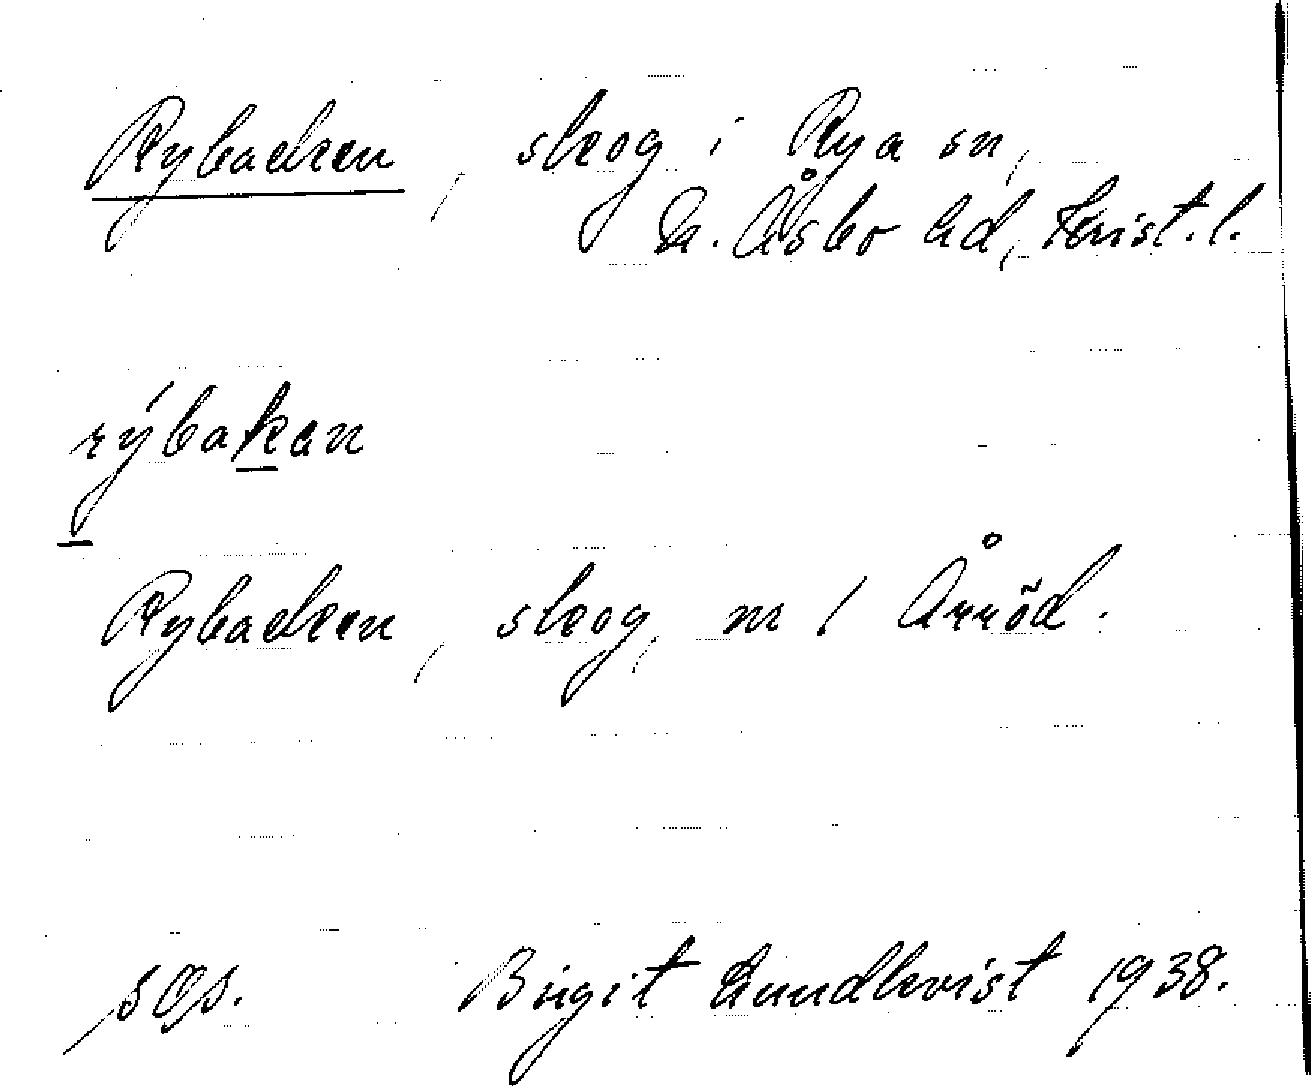 Rybacken, skog i Rya sn,
N. Åsbo hd, Krist. l.
rýbakan
Rybacken, skog, nr 1 Årröd.
Birgit Lundkvist 1938.